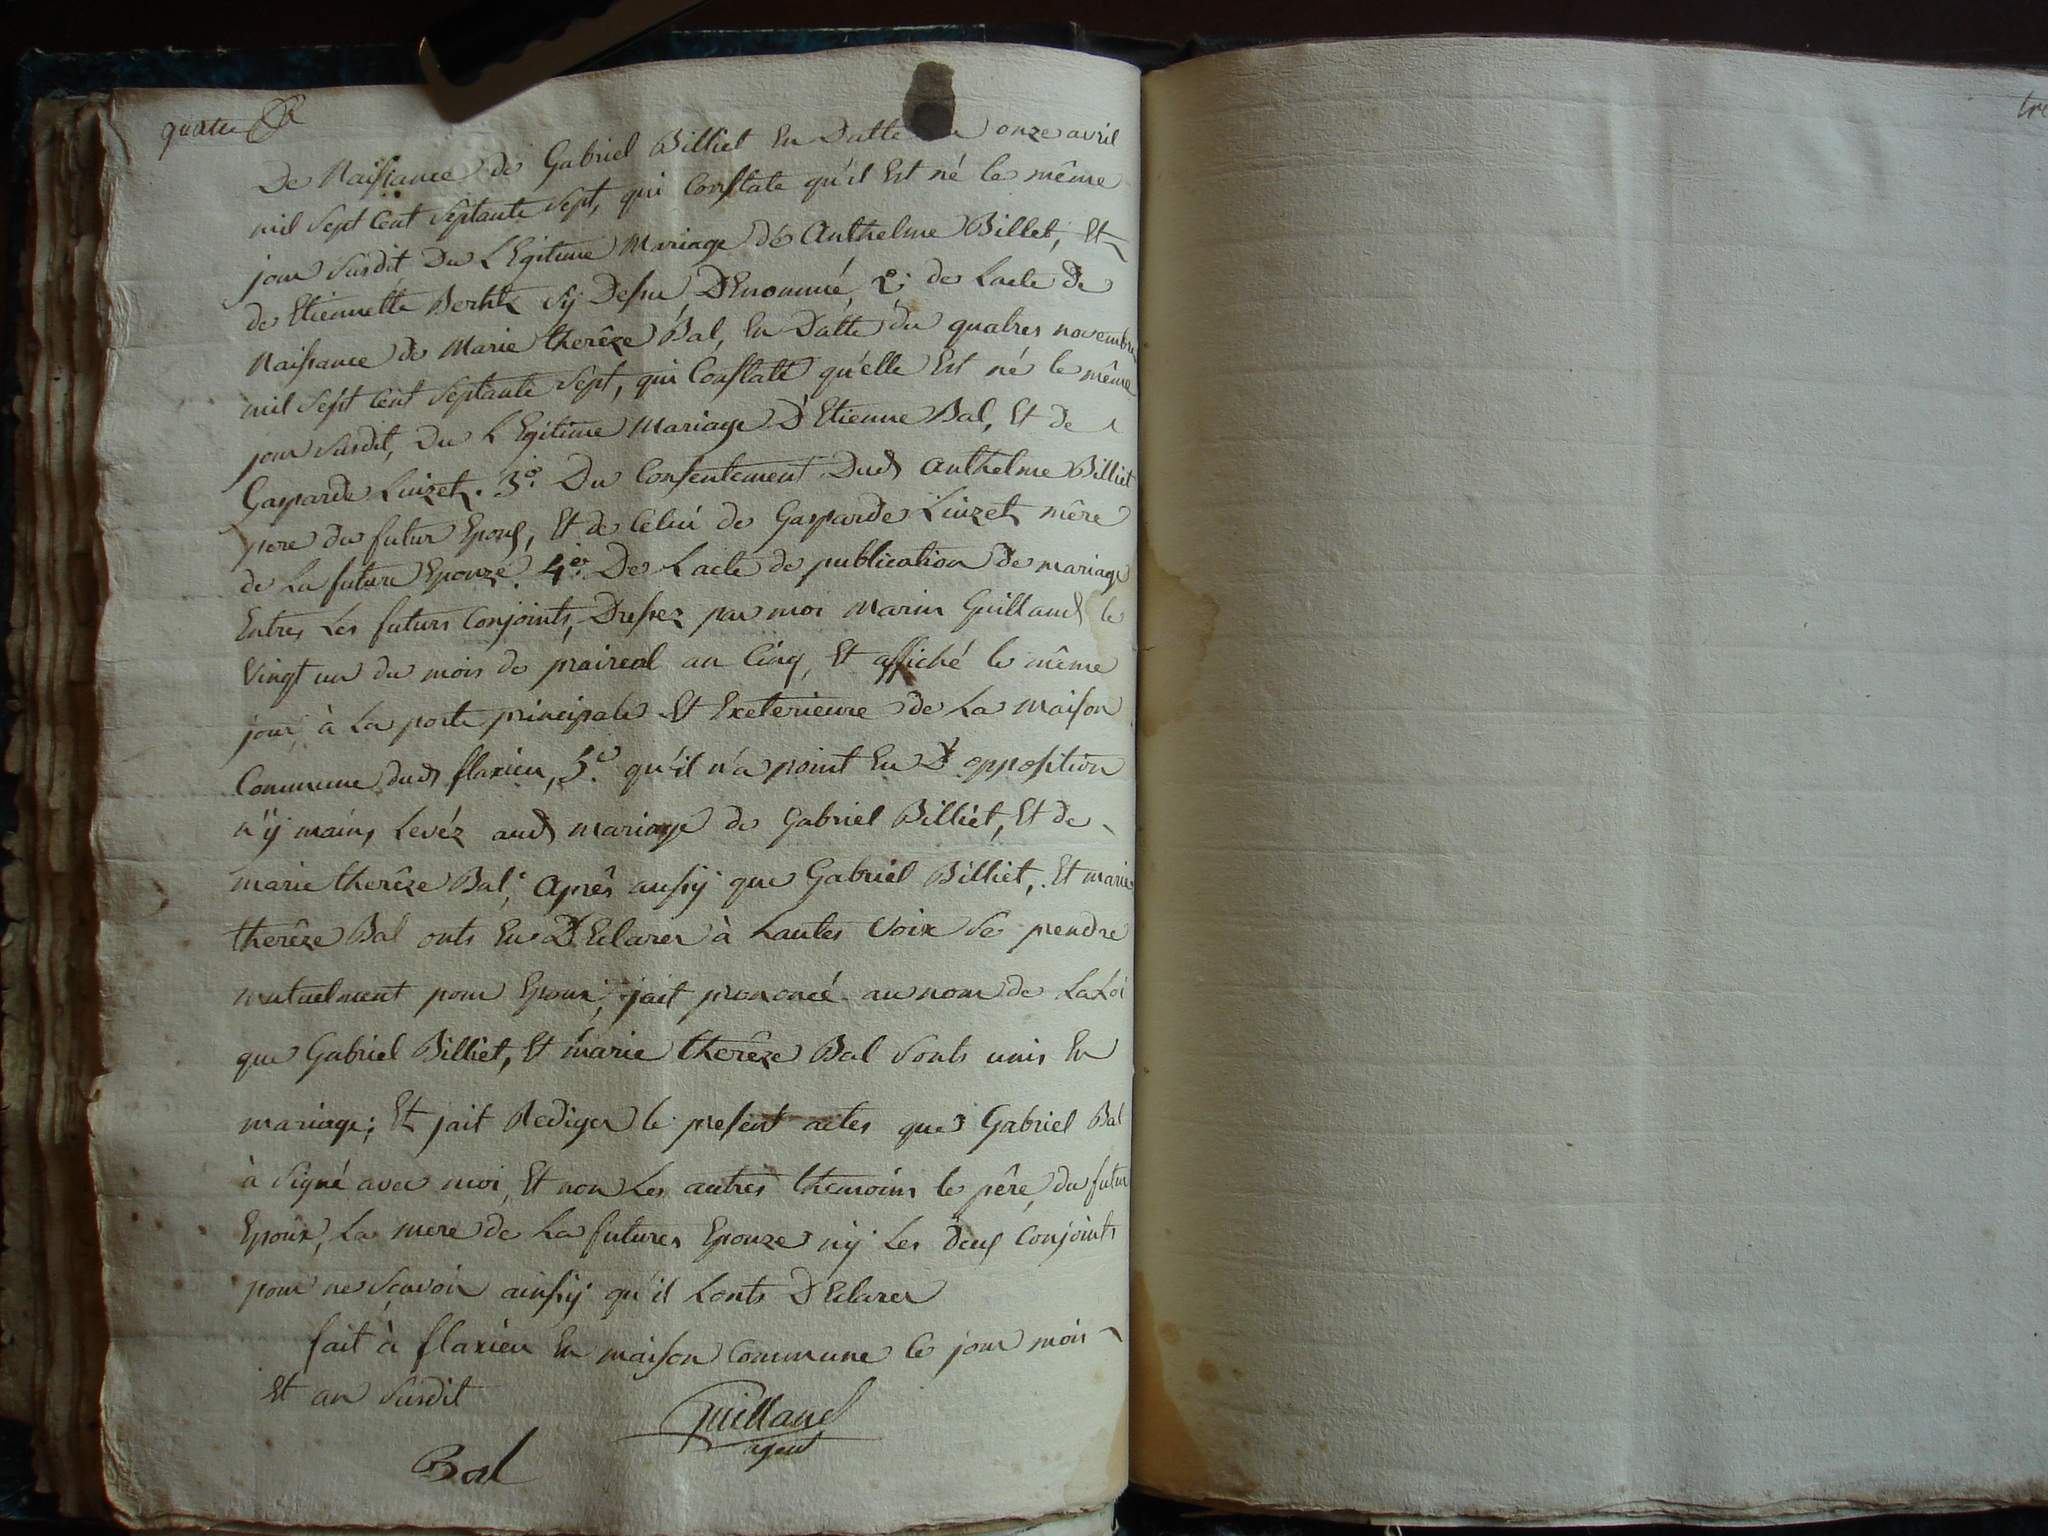 quatre
De Naissance de Gabriel Billiet En Datte du onze avril
mil sept cent septante sept, qui Constate qu'il Est né le même
jour susdit Du LEgitime Mariage de Anthelme Billet, Et
de Etiennette Berht sy Dessu DEnommé, 2° de Lacte de
Naissance de Marie therêze Bal, En Datte du quatres novembre
mil sept cent septante sept, qui Constate qu'elle Est né le même
jour susdit, Du LEgitime Mariage D'Etienne Bal, Et de
Gasparde Luizet. 3°. Du Consentement Dud Anthelme Billiet
pere du futur Epous, Et de Celui de Gasparde Luizet mêre
de La future Epouze. 4°. De Lacte de publication de mariage
Entres Les futurs Conjoints, Dressez par moi Marin Guilland le
Vingt un du mois de praireal an Cinq, Et affiché le même
jour à La porte principale Et Exeterieure de La maison
Commune dud flaxieu, 5° qu'il n'a point Eu D'opposition
n'y mains Levéz aud mariage de Gabriel Billiet, Et de
marie therêze Bal; Après aussy que Gabriel Billiet, Et marie
therêze Bal onts Eu DEclarer à hautes Voix se prendre
mutuelment pour Epoux, jait prononcé au nom de La Loi
que Gabriel Billiet, Et marie therêze Bal sonts unis En
mariage; Et jait Rediger le present actes que Gabriel Bal
à signé avec moi, Et non Les autres themoins le père du futur
Epoux, La mere de La futures Epouze ny Les deux Conjoints
pour ne scavoir ainsy qu'il Lonts DEclarer
fait à flaxieu En maison Commune le jour mois
Et an susdit
Guilland
agent
Bal